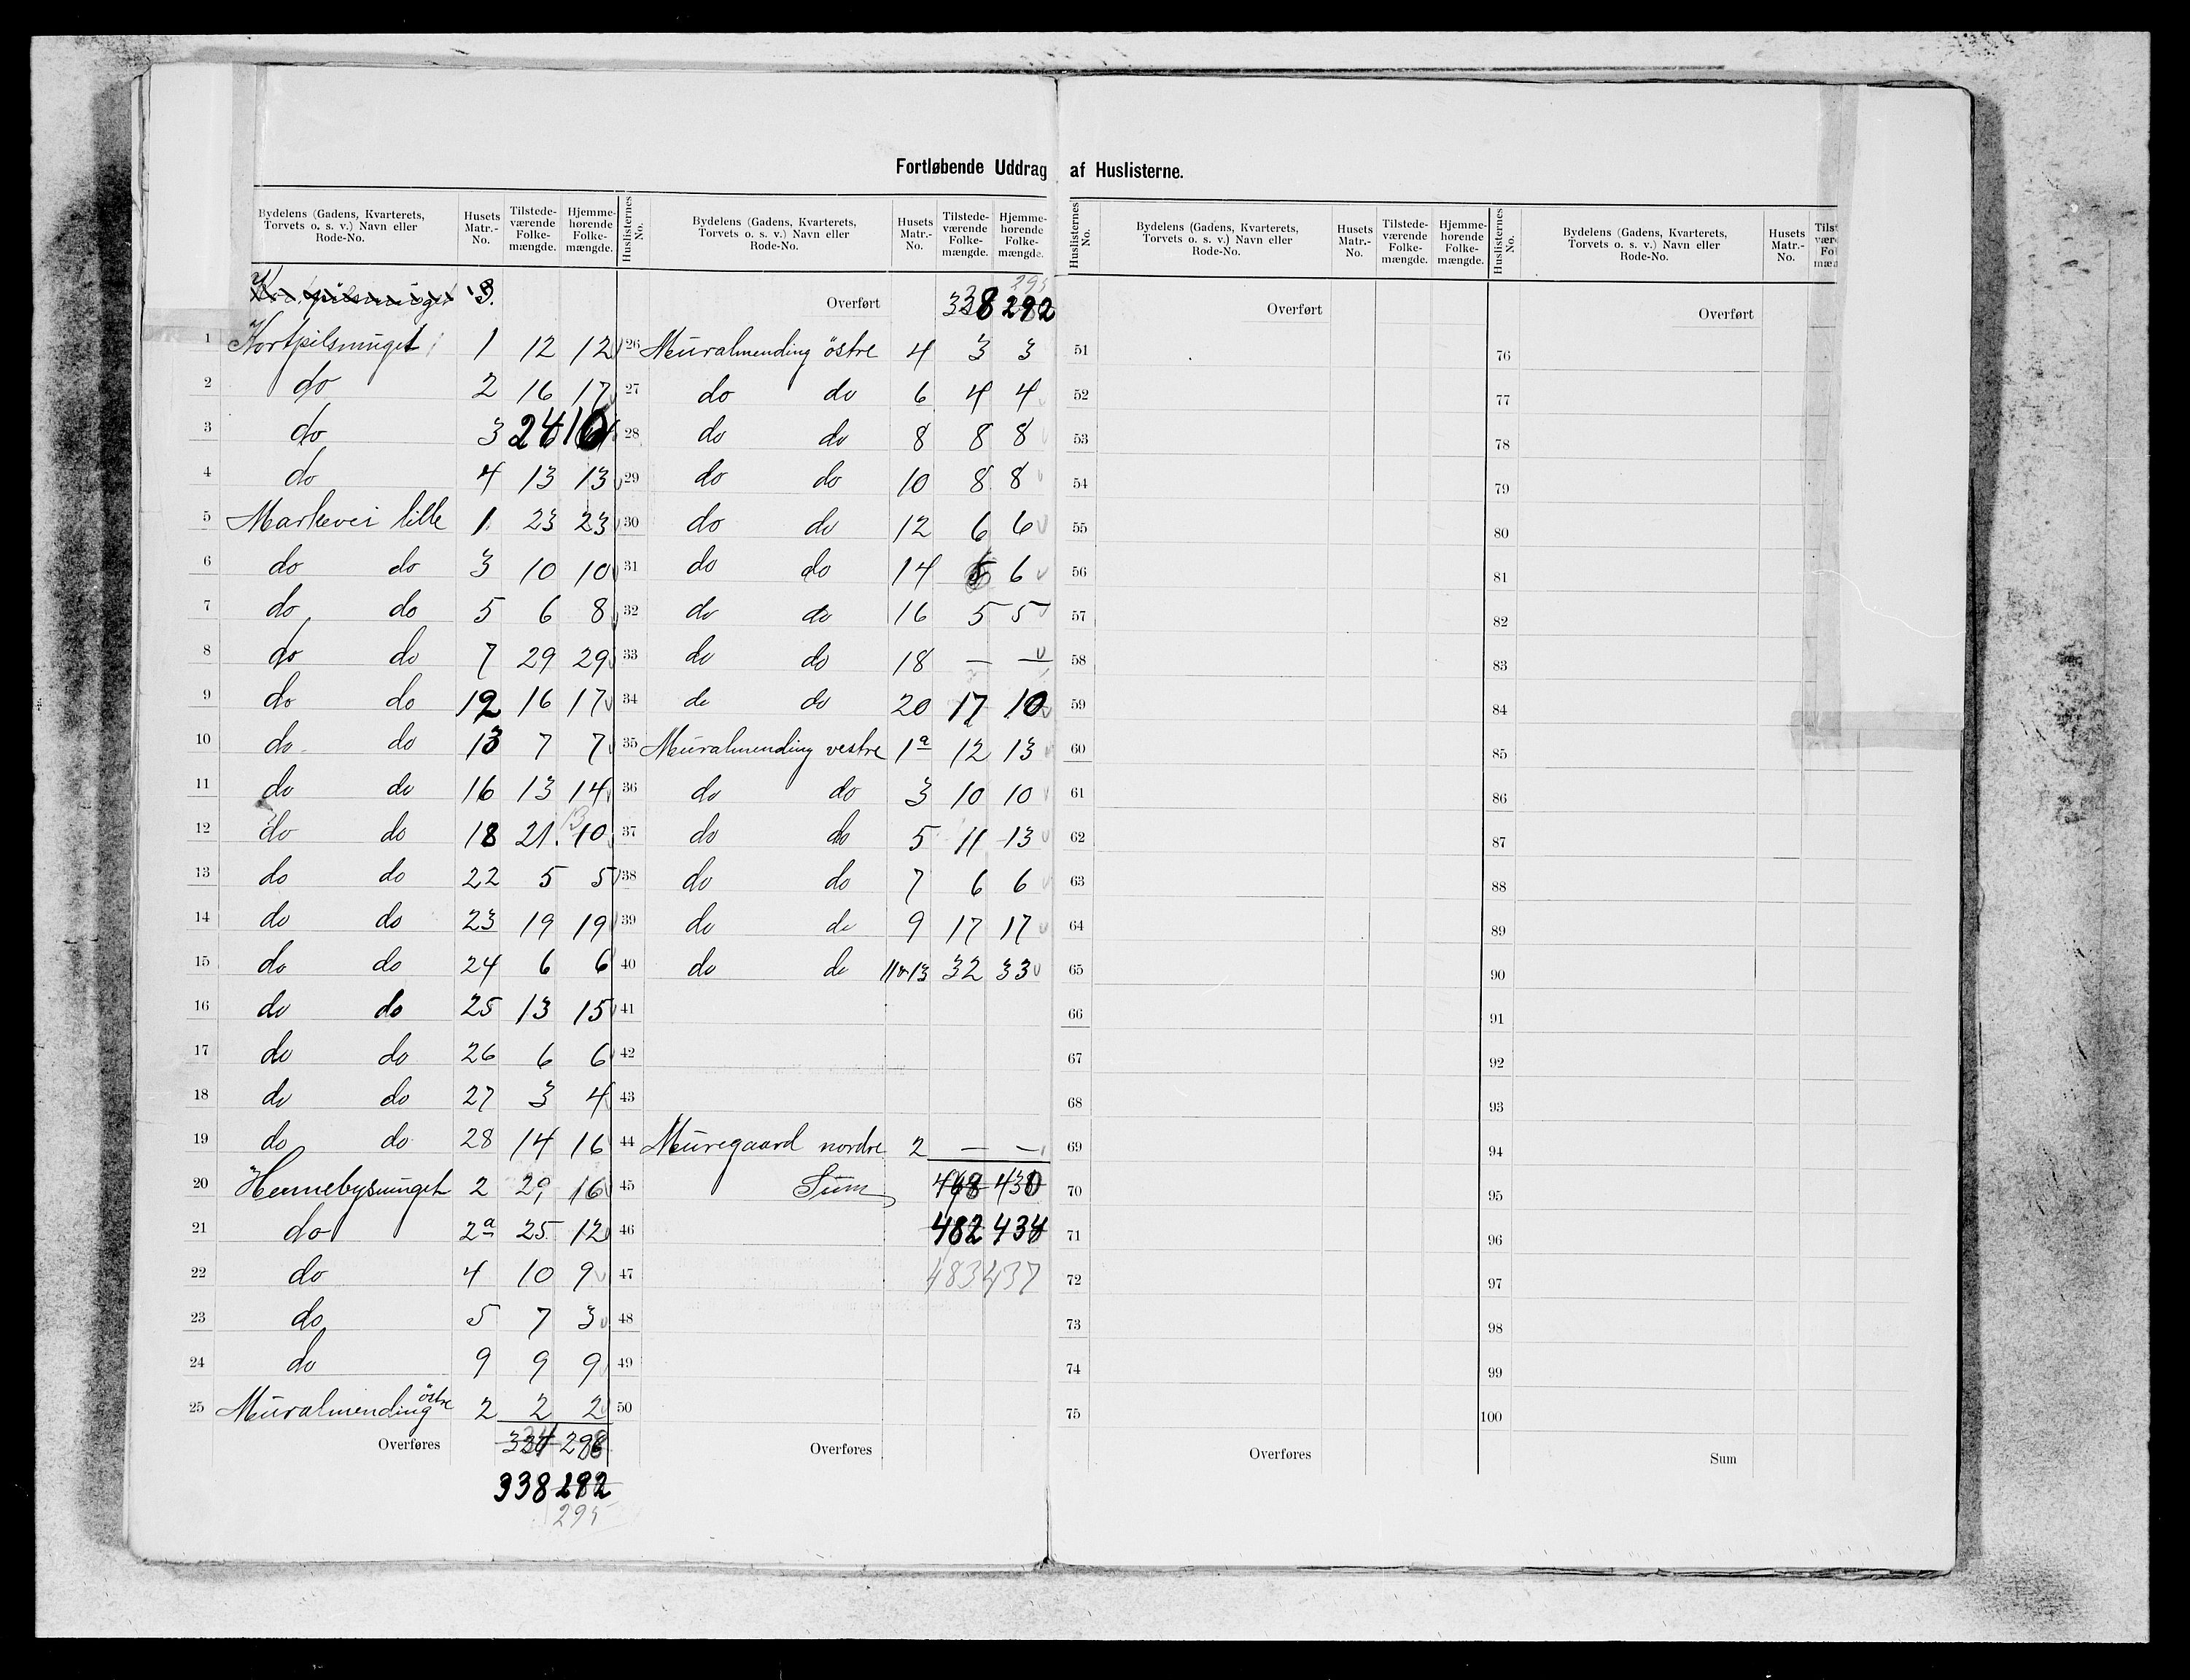 Fortløbende Uddrag af Huslisterne.
Bydelens (Gadens, Kvarterets, Torvets o. s. v.) Navn eller Rode-No. Husets Matr.-No. Tilstede-værende Folke-mængde. Hjemme-hørende Folke-mængde.
3.
1 Kortpilsmuget 1 12 12
2 do 2 16 17
3 do 3 24 10
4 do 4 13 13
5 Markevei lille 1 23 23
6 do do 3 10 10
7 do do 5 6 8
8 do do 7 29 29
9 do do 12 16 17
10 do do 13 7 7
11 do do 16 13 14
12 do do 18 21 13 10
13 do do 22 5 5
14 do do 23 19 19
15 do do 24 6 6
16 do do 25 13 15
17 do do 26 6 6
18 do do 27 3 4
19 do do 28 14 16
20 Hennebysmuget 2 29 16
21 do 2a 25 12
22 do 4 10 9
23 do 5 7 3
24 do 9 9 9
25 Muralmending östre 2 2 2
Overføres
338 292
295
Huslisternes No. Bydelens (Gadens, Kvarterets, Torvets o. s. v.) Navn eller Rode-No. Husets Matr.-No. Tilstede-værende Folke-mængde. Hjemme-hørende Folke-mængde.
295
Overført 338 292
26 Muralmending östre 4 3 3
27 do do 6 4 4
28 do do 8 8 8
29 do do 10 8 8
30 do do 12 6 6
31 do do 14 6
32 do do 16 5 5
33 do do 18 — —
34 do do 20 17 10
35 Muralmending vestre 1a 12 13
36 do do 3 10 10
37 do do 5 11 13
38 do do 7 6 6
39 do do 9 17 17
40 do do 11&13 32 33
41
42
43
44 Muregaard nordre 2 — —
45 Sum 468 430
46 482 434
47 483 437
48
49
50
Overføres
Huslisternes No. Bydelens (Gadens, Kvarterets, Torvets o. s. v.) Navn eller Rode-No. Husets Matr.-No. Tilstede-værende Folke-mængde. Hjemme-hørende Folke-mængde.
Overført
51
52
53
54
55
56
57
58
59
60
61
62
63
64
65
66
67
68
69
70
71
72
73
74
75
Overføres
Huslisternes No. Bydelens (Gadens, Kvarterets, Torvets o. s. v.) Navn eller Rode-No. Husets Matr.-No.
Overført
76
77
78
79
80
81
82
83
84
85
86
87
88
89
90
91
92
93
94
95
96
97
98
99
100
Sum